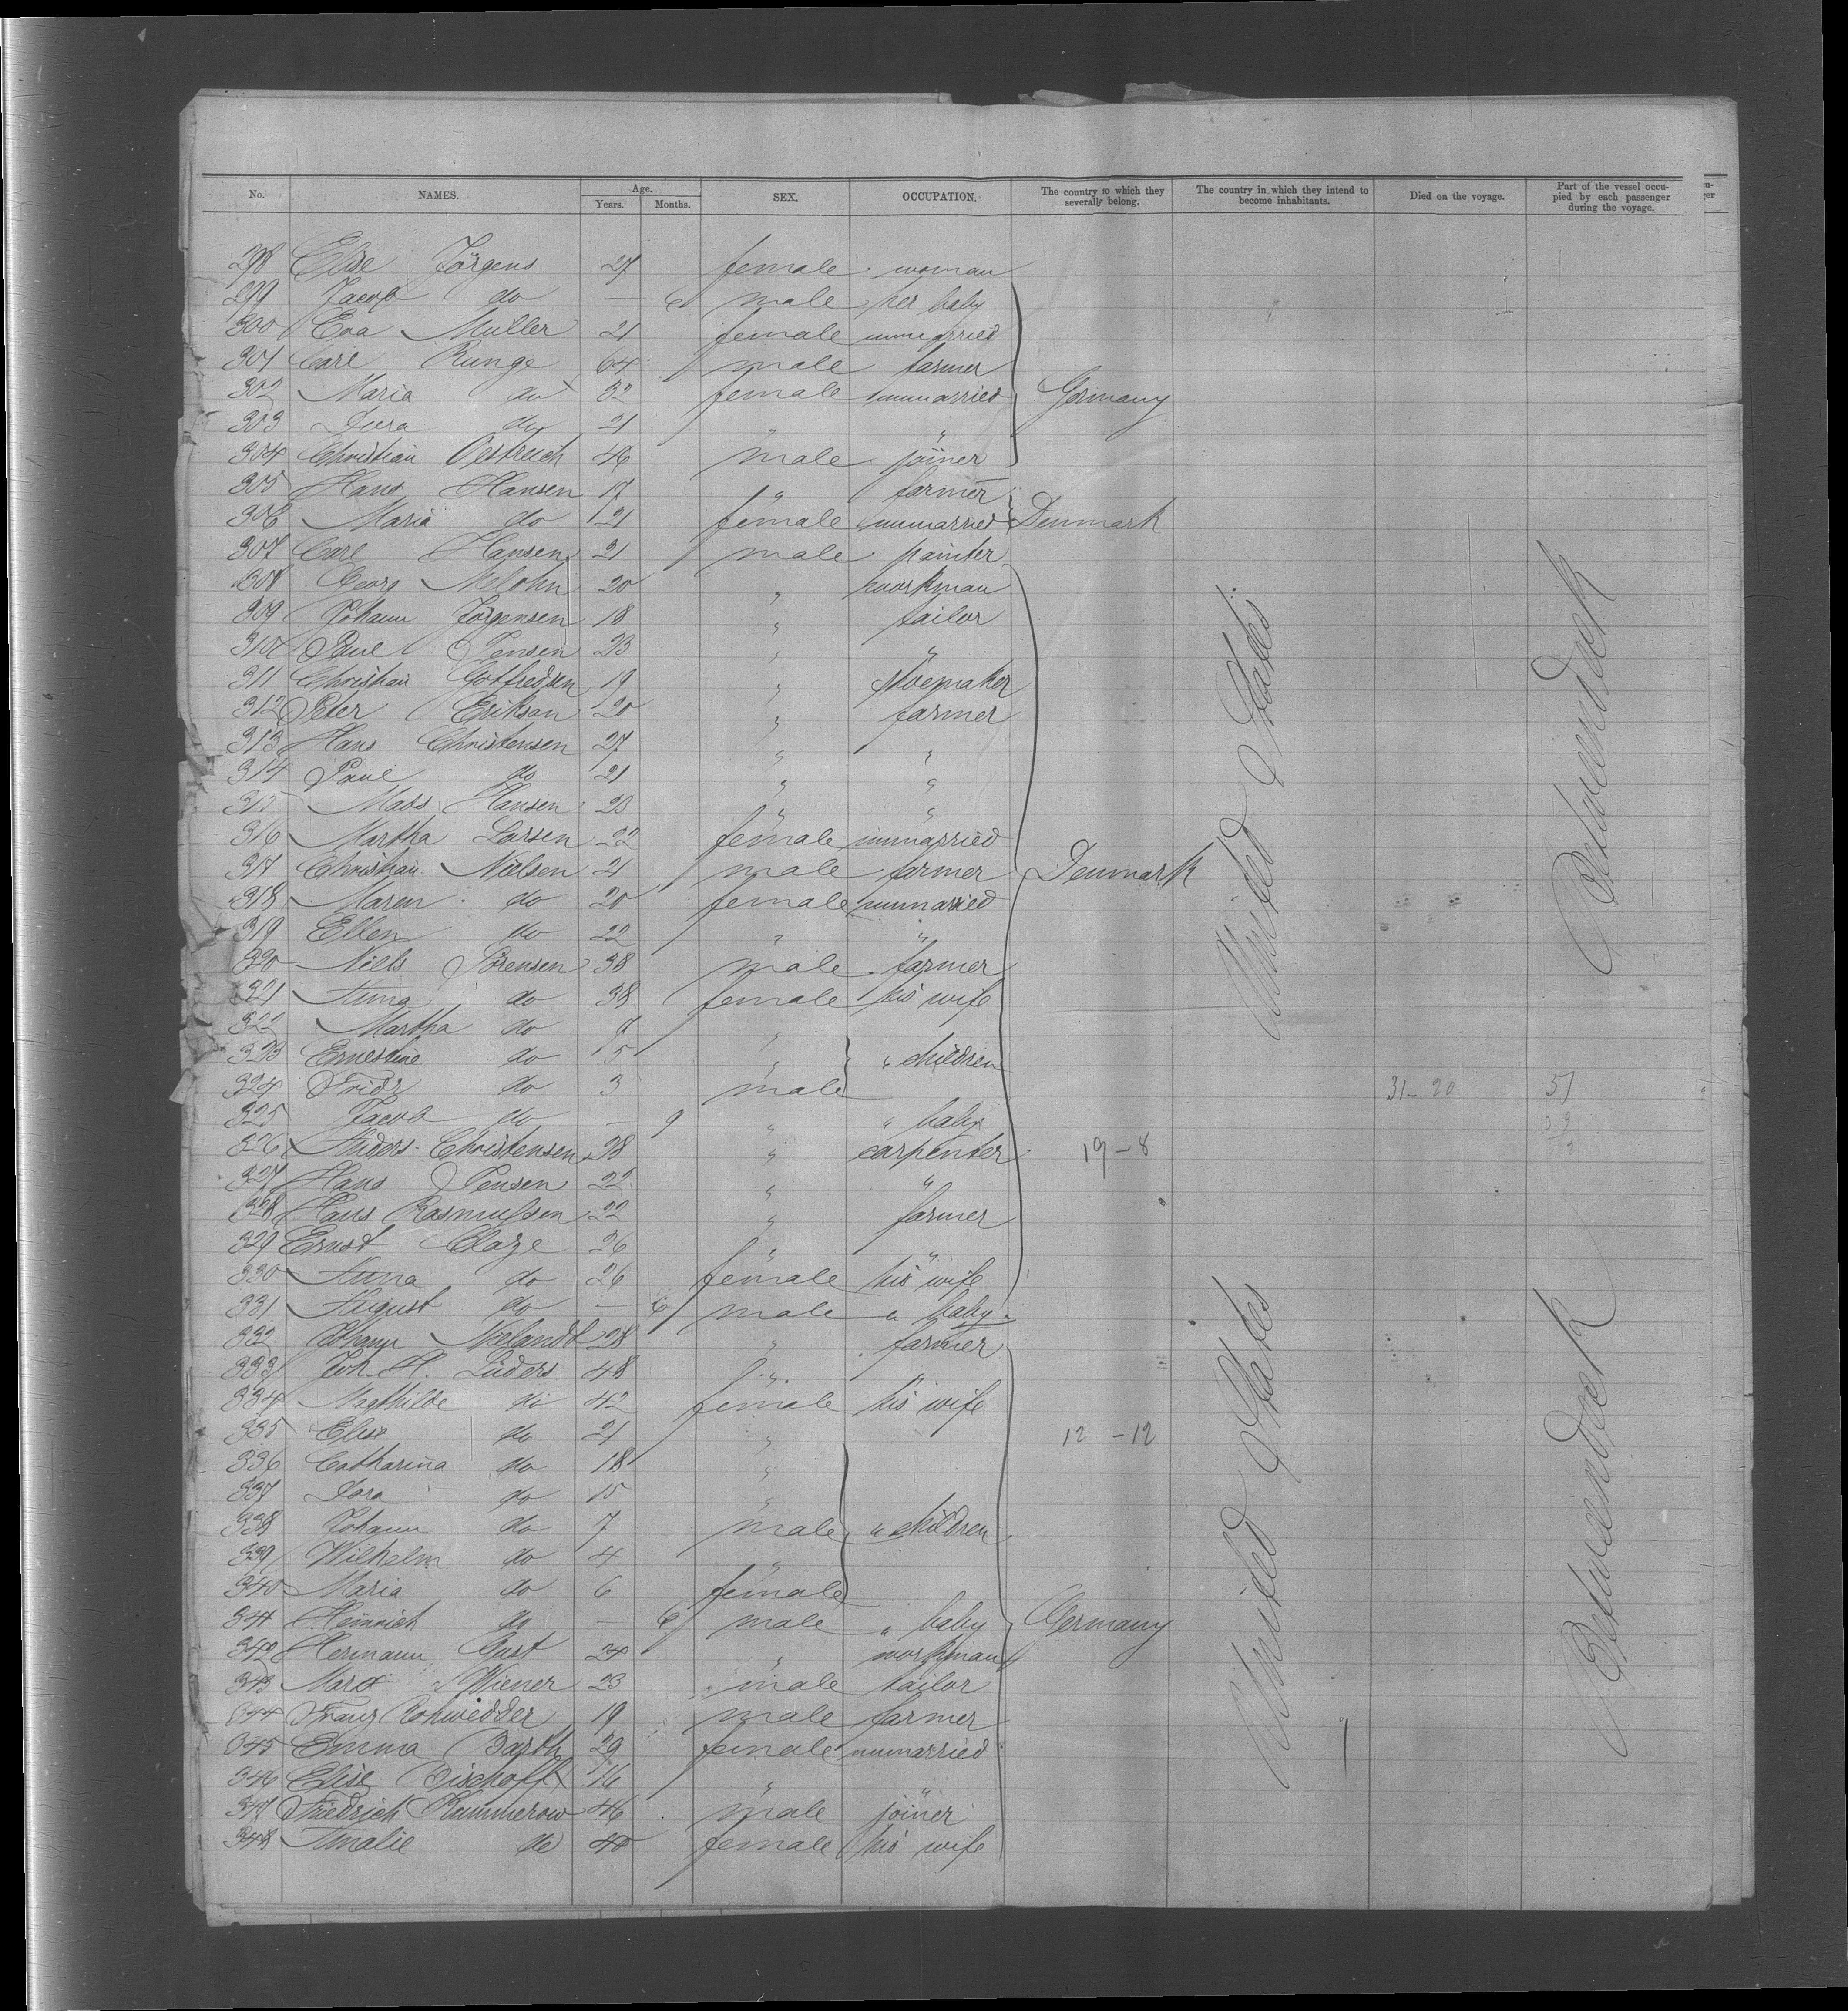 No. NAMES. Age. Years. Months. SEX. OCCUPATION. The country to which they severally belong. The country in which they intend to become inhabitants. Died on the voyage. Part of the vessel occupied by each passenger during the voyage.
298 Elise Jörgens 27 female woman
299 Jacob do — 6 male her baby
300 Eva Müller 21 female unmarried
301 Carl Runge 64 male farmer
302 Maria do 32 female unmarried Germany
303 Dora do 21 " "
304 Christian Oestreich 46 male joiner
305 Hans Hansen 17 " farmer
306 Maria do 21 female unmarried Denmark
307 Carl Hansen 21 male painter
308 Georg 20 " workman
309 Johann Jörgensen 18 " tailor
310 Paul Jensen 23 " "
311 Christian Gotfredsen 19 " shoemaker
312 Peter Erikson 20 " farmer
313 Hans Christensen 27 " "
314 Paul do 21 " "
315 Mads Hansen 23 " "
316 Martha Larsen 22 female unmarried
317 Christian Nielsen 21 male farmer Denmark
318 Maren do 20 female unmarried
319 Ellen do 22 " "
320 Niels Sörensen 38 male farmer
321 Anna do 38 female his wife
322 Martha do 7 "
323 Ernestine do 5 " " children
324 Fridz do 3 male 31-20 51
325 Jacob do — 9 " " baby
326 Anders Christensen 28 " carpenter 19-8
327 Hans Jensen 22 " "
328 Hans Rasmussen 22 " farmer
329 Ernst Claze 26 " "
330 Anna do 26 female his wife
331 August do — 6 male " baby
332 Johann 28 " farmer
333 Joh. H. Lüders 48 " "
334 Magthilde do 42 female his wife
335 Elise do 21 " 12-12
336 Catharina do 18 "
337 Dora do 15 "
338 Johann do 7 male " children
339 Wilhelm do 4 "
340 Maria do 6 female
341 Heinrich do — 6 male " baby Germany
342 Hermann Gust 24 " workman
343 Marx Wiener 23 male tailor
344 Franz Rohwedder 19 male farmer
345 Emma Barth 29 female unmarried
346 Elise Bischoff 16 " "
347 Friedrich Kummerow 46 male joiner
348 Amalie do 40 female his wife
United States
United States